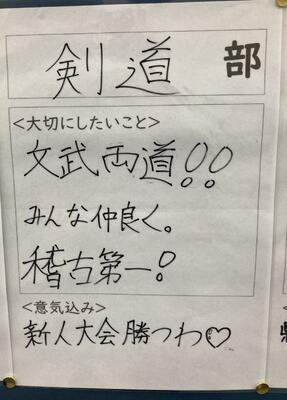 剣道 部
<大切にしたいこと>
文武両道!!
みんな仲良く。
稽古第一!
<意気込み>
新人大会勝つわ♡